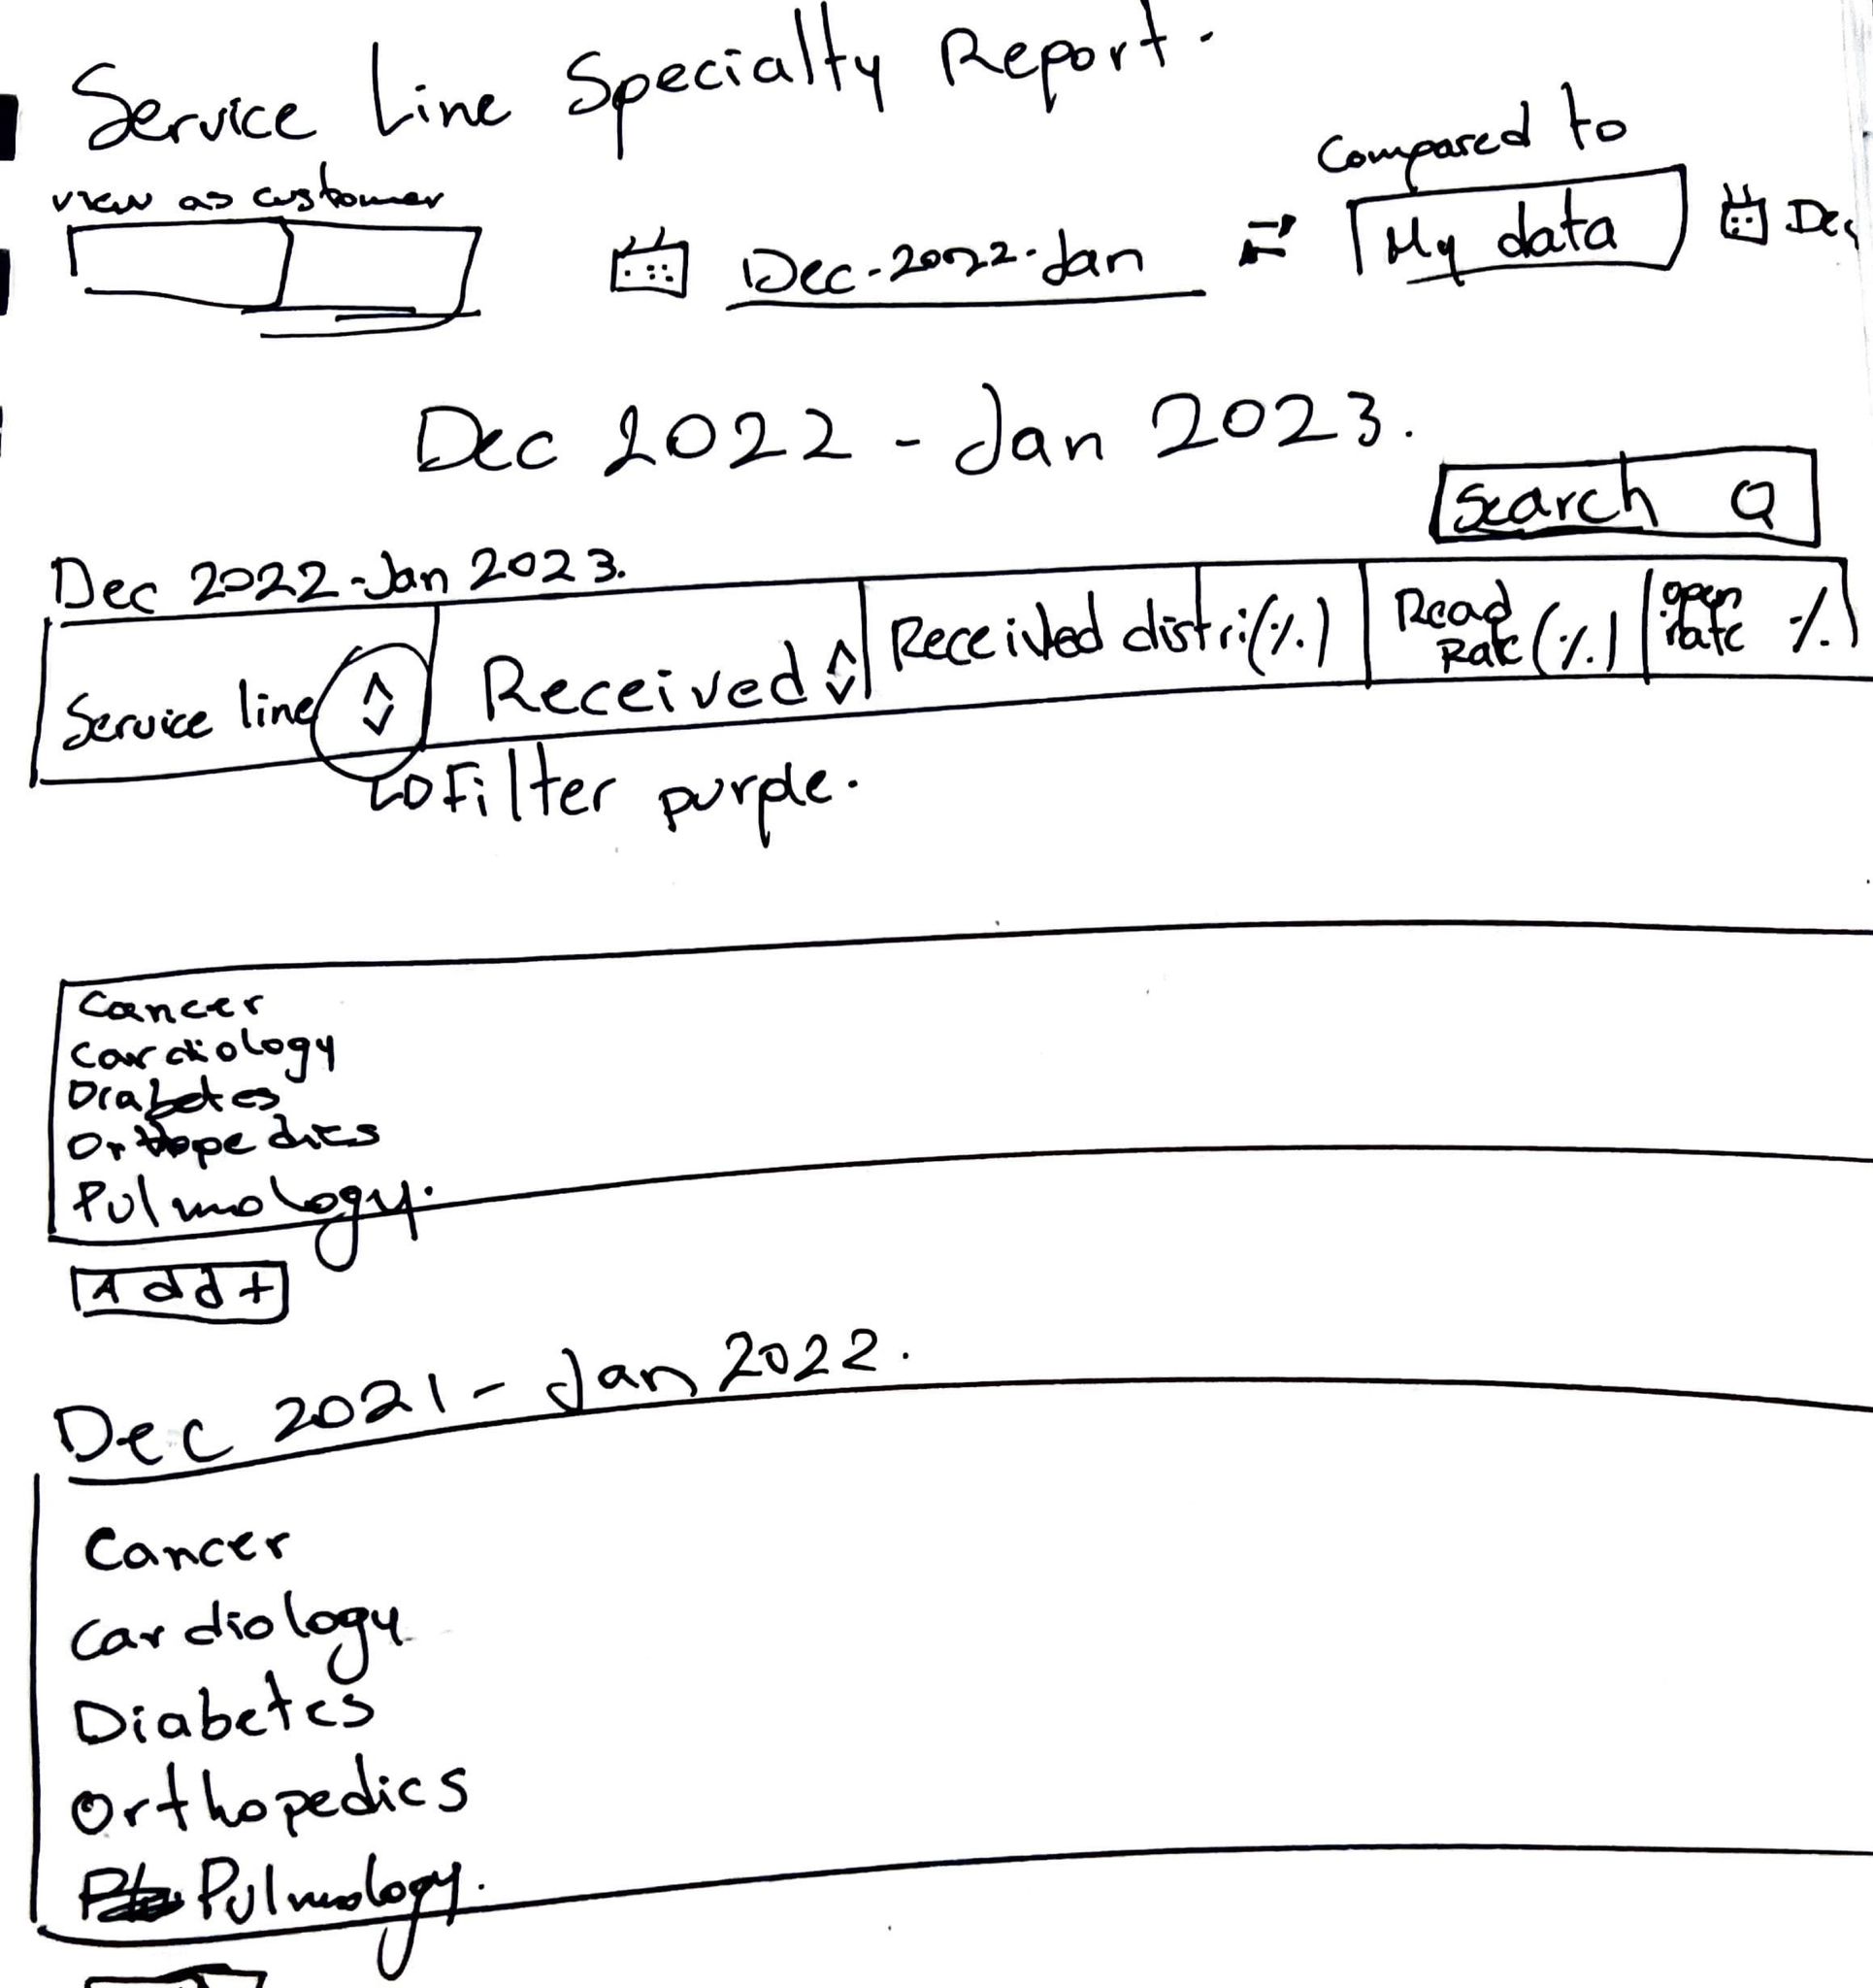 Service Line Specialty Report.
view as customer
Compared to
Dec-2022-Jan
My data
Dec
Dec 2022 - Jan 2023.
Search
Dec 2022-Jan 2023.
Service line
Received
Received distri(%)
Read Rate (%)
open rate %
Filter purple.
Cancer
Cardiology
Diabetes
Orthopedics
Pulmology.
Add +
Dec 2021 - Jan 2022.
Cancer
Cardiology
Diabetes
Orthopedics
Pulmology.